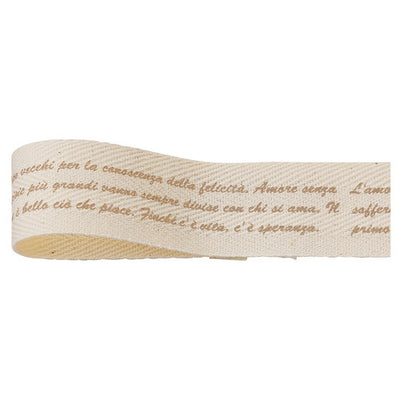 vecchi per la conoscenza della felicità. Amore senza L'amo
più grandi vanno sempre divise con chi si ama. Il soffer
è bello ciò che piace. Finchì c'è vita, c'è speranza. primo